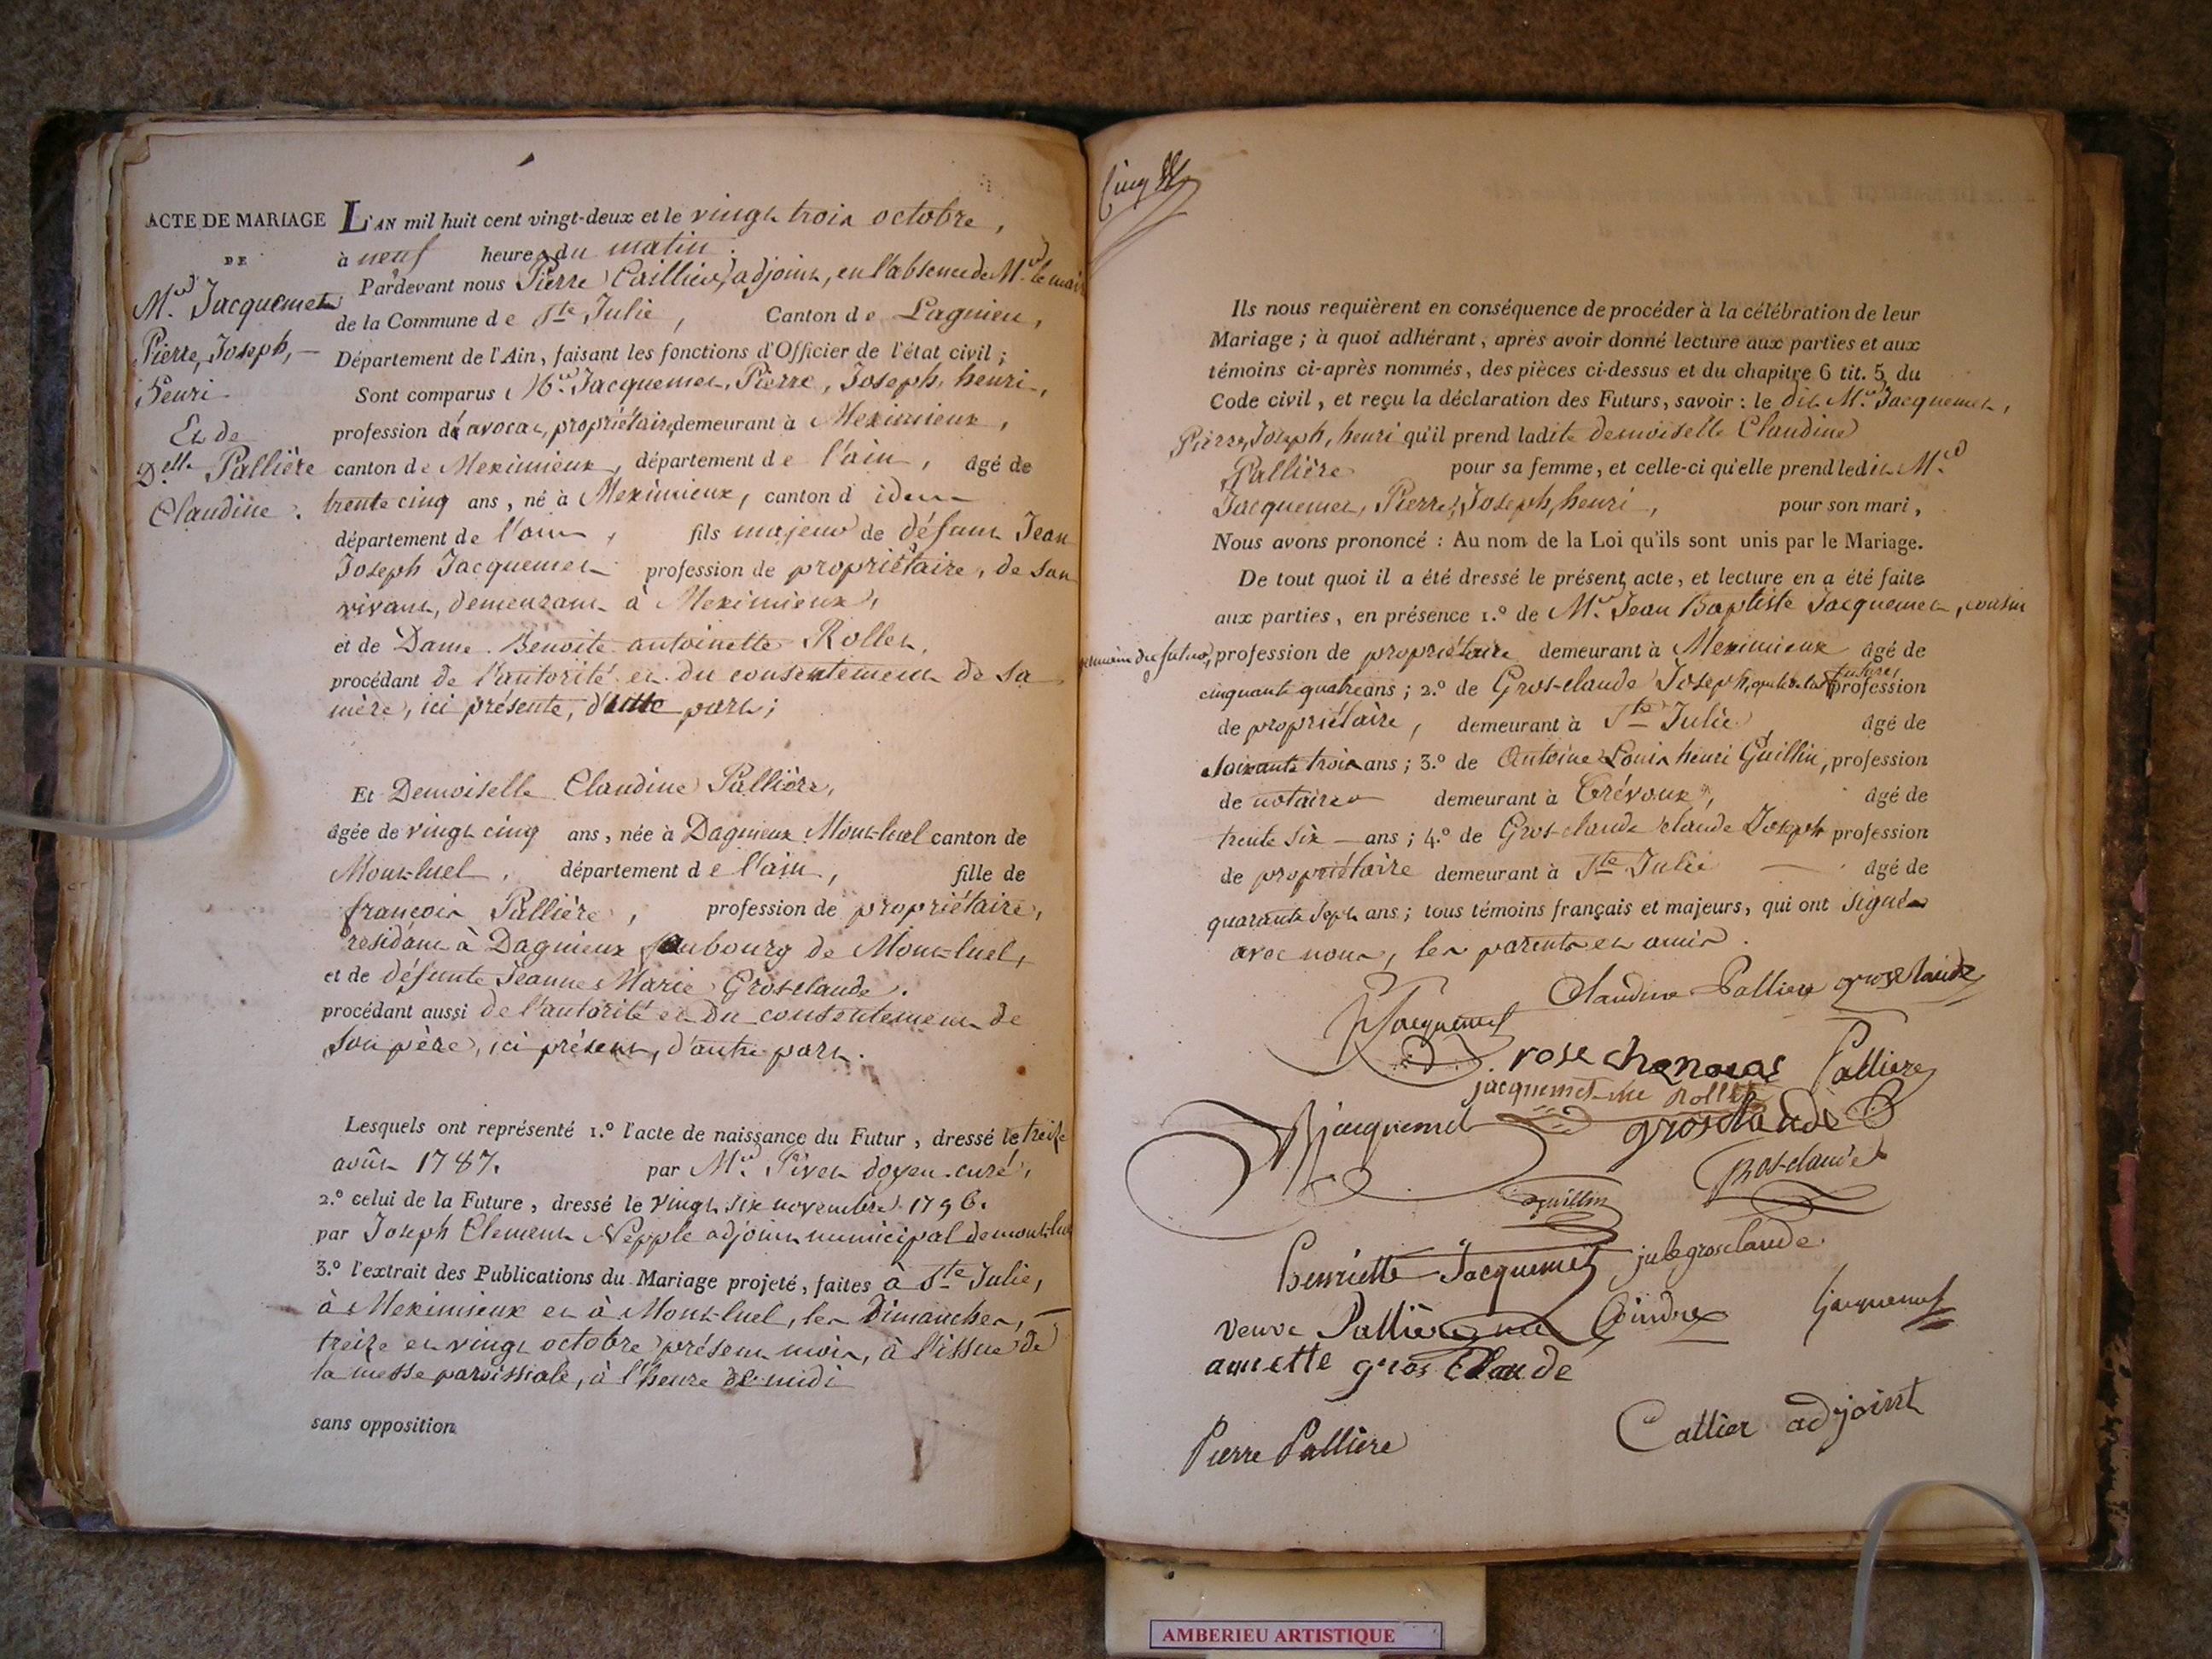 ACTE DE MARIAGE
DE
M.r Jacquemet
Pierre, Joseph, —
henri
Et de
D.elle Pallière
Claudine.
L'AN mil huit cent vingt-deux et le vingt trois octobre,
à neuf heures du matin.
Pardevant nous Pierre Caillier, adjoint, en l'absence de M.r le mair
de la Commune de Ste Julie, Canton de Lagnieu,
Département de l'Ain, faisant les fonctions d'Officier de l'état civil;
Sont comparus M.r Jacquemet, Pierre, Joseph, henri,
profession d'avocat, propriétaire, demeurant à Meximieux,
canton de Meximieux, département de l'ain, âgé de
trente cinq ans, né à Meximieux, canton d idem
département de l'ain, fils majeur de défunt Jean
Joseph Jacquemet profession de propriétaire, de son
vivant, demeurant à Meximieux,
et de Dame Benoite antoinette Rollet,
procédant de l'autorité et du consentement de sa
mère, ici présente, d'une part;
Et Demoiselle Claudine Pallière,
âgée de vingt cinq ans, née à Dagnieux Mont-luel canton de
Mont-luel, département de l'ain, fille de
françois Pallière, profession de propriétaire,
residant à Dagnieux faubourg de Mont-luel,
et de défunte Jeanne Marie Grosclaude.
procédant aussi de l'autorité et du consentement de
son père, ici présent, d'autre part.
Lesquels ont représenté 1.º l'acte de naissance du Futur, dressé le treize
août 1787. par M.r Pivet doyen curé,
2.º celui de la Future, dressé le vingt six novembre 1796.
par Joseph Clement Nepple adjoint municipal de mont-lu
3.º l'extrait des Publications du Mariage projeté, faites à Ste Julie,
à Meximieux et à Mont-luel, les Dimanches, —
treize et vingt octobre présent mois, à l'issue de
la messe paroissiale, à l'heure de midi
sans opposition
Cinq
Ils nous requièrent en conséquence de procéder à la célébration de leur
Mariage; à quoi adhérant, après avoir donné lecture aux parties et aux
témoins ci-après nommés, des pièces ci-dessus et du chapitre 6 tit. 5 du
Code civil, et reçu la déclaration des Futurs, savoir: le dit M.r Jacquemet,
Pierre, Joseph, henri qu'il prend ladite demoiselle Claudine
Pallière pour sa femme, et celle-ci qu'elle prend ledit M.r
Jacquemet, Pierre, Joseph, henri, pour son mari,
Nous avons prononcé: Au nom de la Loi qu'ils sont unis par le Mariage.
De tout quoi il a été dressé le présent acte, et lecture en a été faite
aux parties, en présence 1.º de M.r Jean Baptiste Jacquemet, cousin
germain du futur, profession de propriétaire demeurant à Meximieux âgé de
cinquante quatre ans; 2.º de Gros-claude Joseph, de la future profession
de propriétaire, demeurant à Ste Julie âgé de
soixante trois ans; 3.º de Antoine Louis henri Guillin, profession
de notaire demeurant à Trévoux, âgé de
trente six — ans; 4.º de Gros-claude claude Joseph profession
de propriétaire demeurant à Ste Julie — âgé de
quarante sept ans; tous témoins français et majeurs, qui ont signé
avec nous, les parents et amis.
Claudine Palliere grosclaude
Jacquemet
rose chenavas Palliere
jacquemet née Rollet
Jacquemet grosclaude
Grosclaude
Guillin
henriette Jacquemet jule grosclaude.
veuve Pallière née Coindre Jacquemet
annette gros Claude
Pierre Palliere Callier adjoint
AMBERIEU ARTISTIQUE